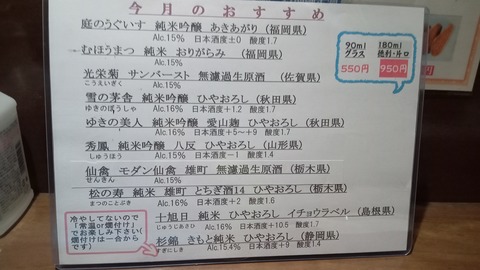 今月のおすすめ
庭のうぐいす 純米吟醸 あきあがり (福岡県)
Alc.15% 日本酒度±0 酸度1.7
むほうまつ 純米 おりがらみ (福岡県)
Alc.15%
光栄菊 サンバースト 無濾過生原酒 (佐賀県)
こうえいぎく Alc.15%
雪の茅舎 純米吟醸 ひやおろし (秋田県)
ゆきのぼうしゃ Alc.16% 日本酒度+1.2 酸度1.7
ゆきの美人 純米吟醸 愛山麹 ひやおろし (秋田県)
Alc.16% 日本酒度+5~+9 酸度1.7
秀鳳 純米吟醸 八反 ひやおろし (山形県)
しゅうほう Alc.16% 日本酒度-1 酸度1.4
仙禽 モダン仙禽 雄町 無濾過原酒 (栃木県)
せんきん Alc.15%
松の寿 純米 雄町 とちぎ酒14 ひやおろし (栃木県)
まつのことぶき Alc.16%
十旭日 純米 ひやおろし イチョウラベル (島根県)
じゅうじあさひ Alc.16% 日本酒度+10.5 酸度1.7
杉錦 きもと純米 ひやおろし (静岡県)
すぎにしき Alc.15.4% 日本酒度+9 酸度1.4
90ml
グラス
550円
180ml
徳利・片口
950円
冷やしてないので
「常温or燗付け」
でお楽しみ下さい
(燗付けは一合から
です)